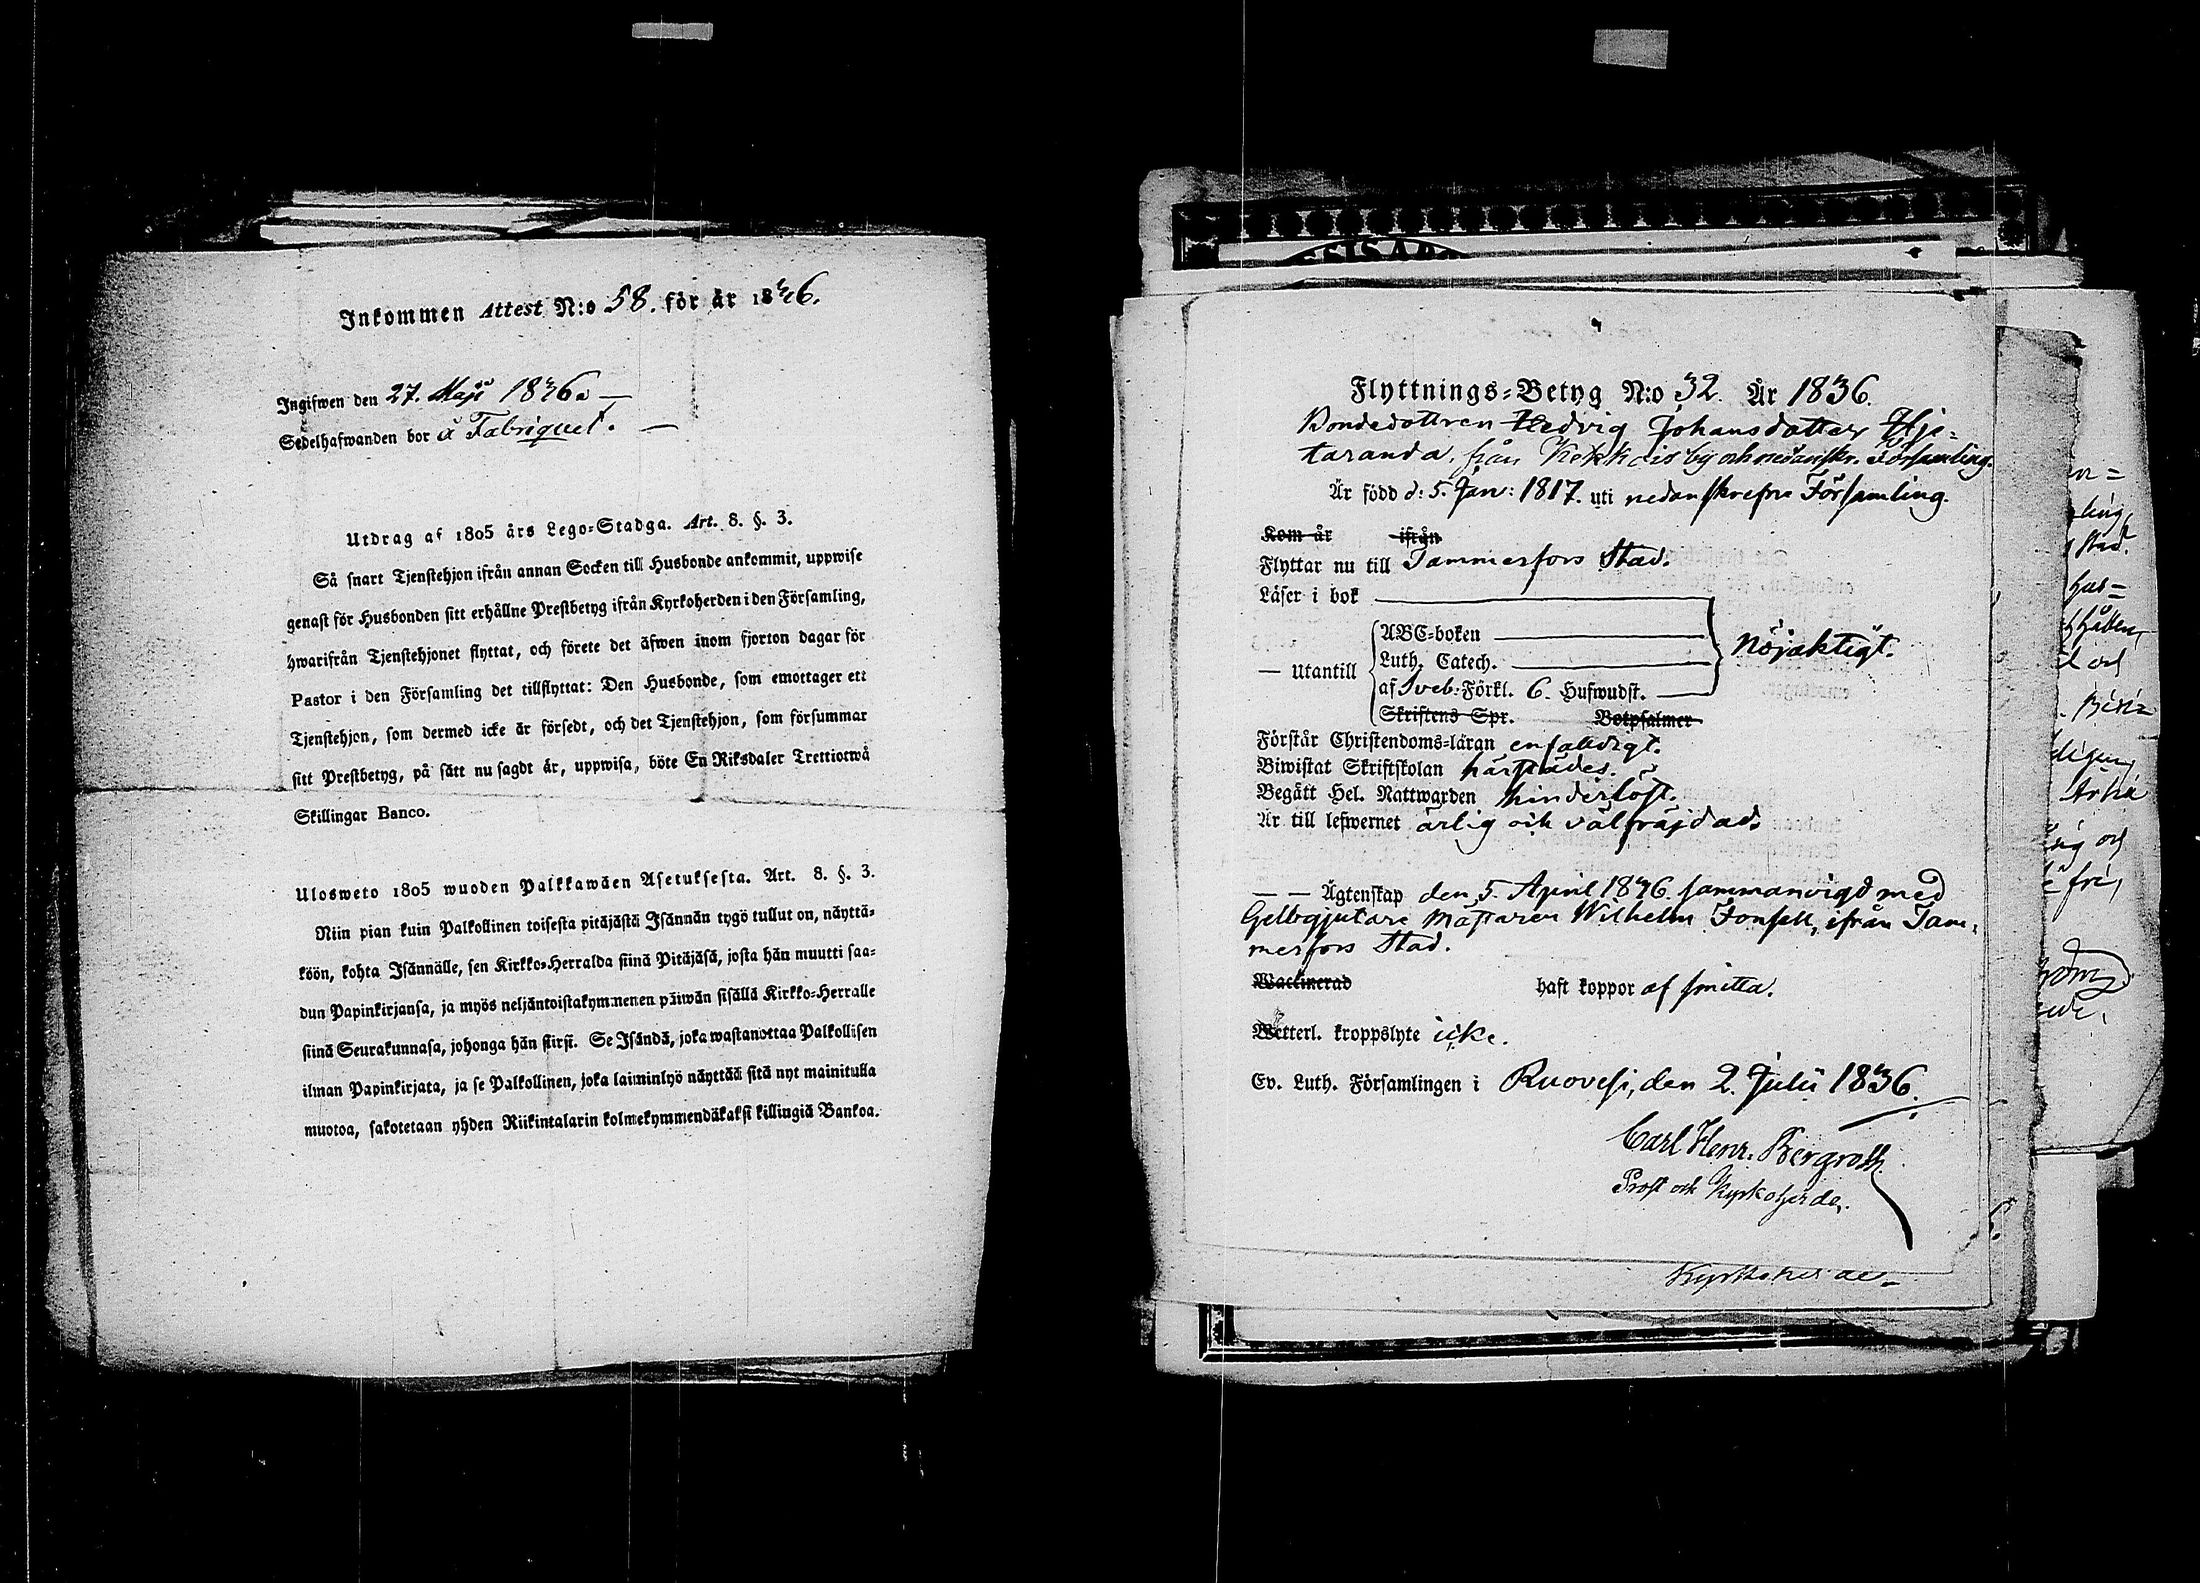 Inkommen Attest N:o 58. för år 1836.
Ingifwen den 27. Maji 1836. —
Sedelhafwanden bor å Fabriquet. —
Utdrag af 1805 års Lego=Stadga. Art. 8. §. 3.
Så snart Tjenstehjon ifrån annan Socken till Husbonde ankommit, uppwise
genast för Husbonden sitt erhållne Prestbetyg ifrån Kyrkoherden i den Församling,
hwarifrån Tjenstehjonet flyttat, och förete det äfwen inom fjorton dagar för
Pastor i den Församling det tillflyttat: Den Husbonde, som emottager ett
Tjenstehjon, som dermed icke är försedt, och det Tjenstehjon, som försummar
sitt Prestbetyg, på sätt nu sagdt är, uppwisa, böte En Riksdaler Trettiotwå
Skillingar Banco.
Ulosweto 1805 wuoden Palkkawäen Asetuksesta. Art. 8. §. 3.
Niin pian kuin Palkollinen toisesta pitäjästä Isännän tygö tullut on, näyttä=
köön, kohta Isännälle, sen Kirkko=Herralda siinä Pitäjäsä, josta hän muutti saa=
dun Papinkirjansa, ja myös neljäntoistakymmenen päiwän sisällä Kirkko=Herralle
siinä Seurakunnasa, johonga hän siirsi. Se Isändä, joka wastanottaa Palkollisen
ilman Papinkirjata, ja se Palkollinen, joka laiminlyö näyttää sitä nyt mainitulla
muotoa, sakotetaan yhden Riikintalarin kolmekymmendäkaksi killingiä Bankoa.
Flyttnings=Betyg N:o 32. År 1836.
Bondedottren Hedvig Johansdotter Hje=
taranda, från Kekkois by och nedanskr. Församling.
Är född d: 5. Jan: 1817. uti nedanskrefne Församling.
Kom år ifrån
Flyttar nu till Tammerfors Stad.
Läser i bok
— utantill
ABC=boken
Luth. Catech.
af Sveb: Förkl. 6. Hufwudst.
Skriftens Spr. Botpsalmer
Nöjaktigt.
Förstår Christendoms=läran enfaldigt.
Biwistat Skriftskolan härstädes.
Begått Hel. Nattwarden hinderlöst.
Är till lefwernet ärlig och välfräjdad.
— — Ägtenskap den 5. April 1836. sammanvigd med
Gelbgjutare Mästaren Wilhelm Fonsell, ifrån Tam=
merfors Stad.
Waccinerad haft koppor af smitta.
Wetterl. kroppslyte icke.
Ev. Luth. Församlingen i Ruovesi, den 2. Julii 1836.
Carl Henr. Bergroth.
Prost och Kyrkoherde.
Kyrkoherde